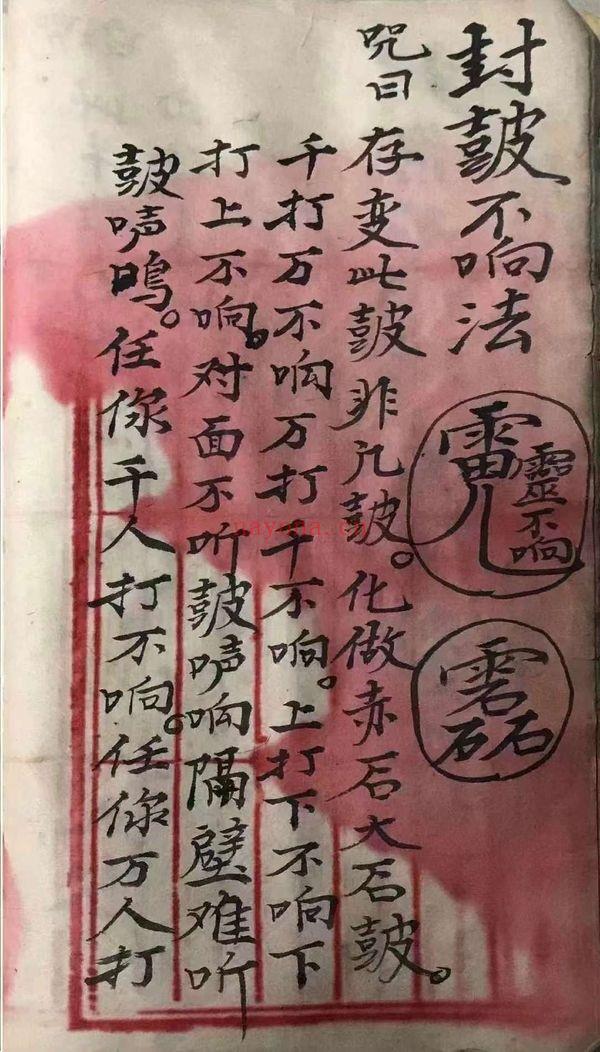 封皷不响法
靈不响
咒曰存变此皷非凡皷。化做赤石大石皷。
千打万不响万打千不响。上打下不响下
打上不响。对面不听皷声响隔壁难听
皷声鳴。任你千人打不响。任你万人打
nayona.cn